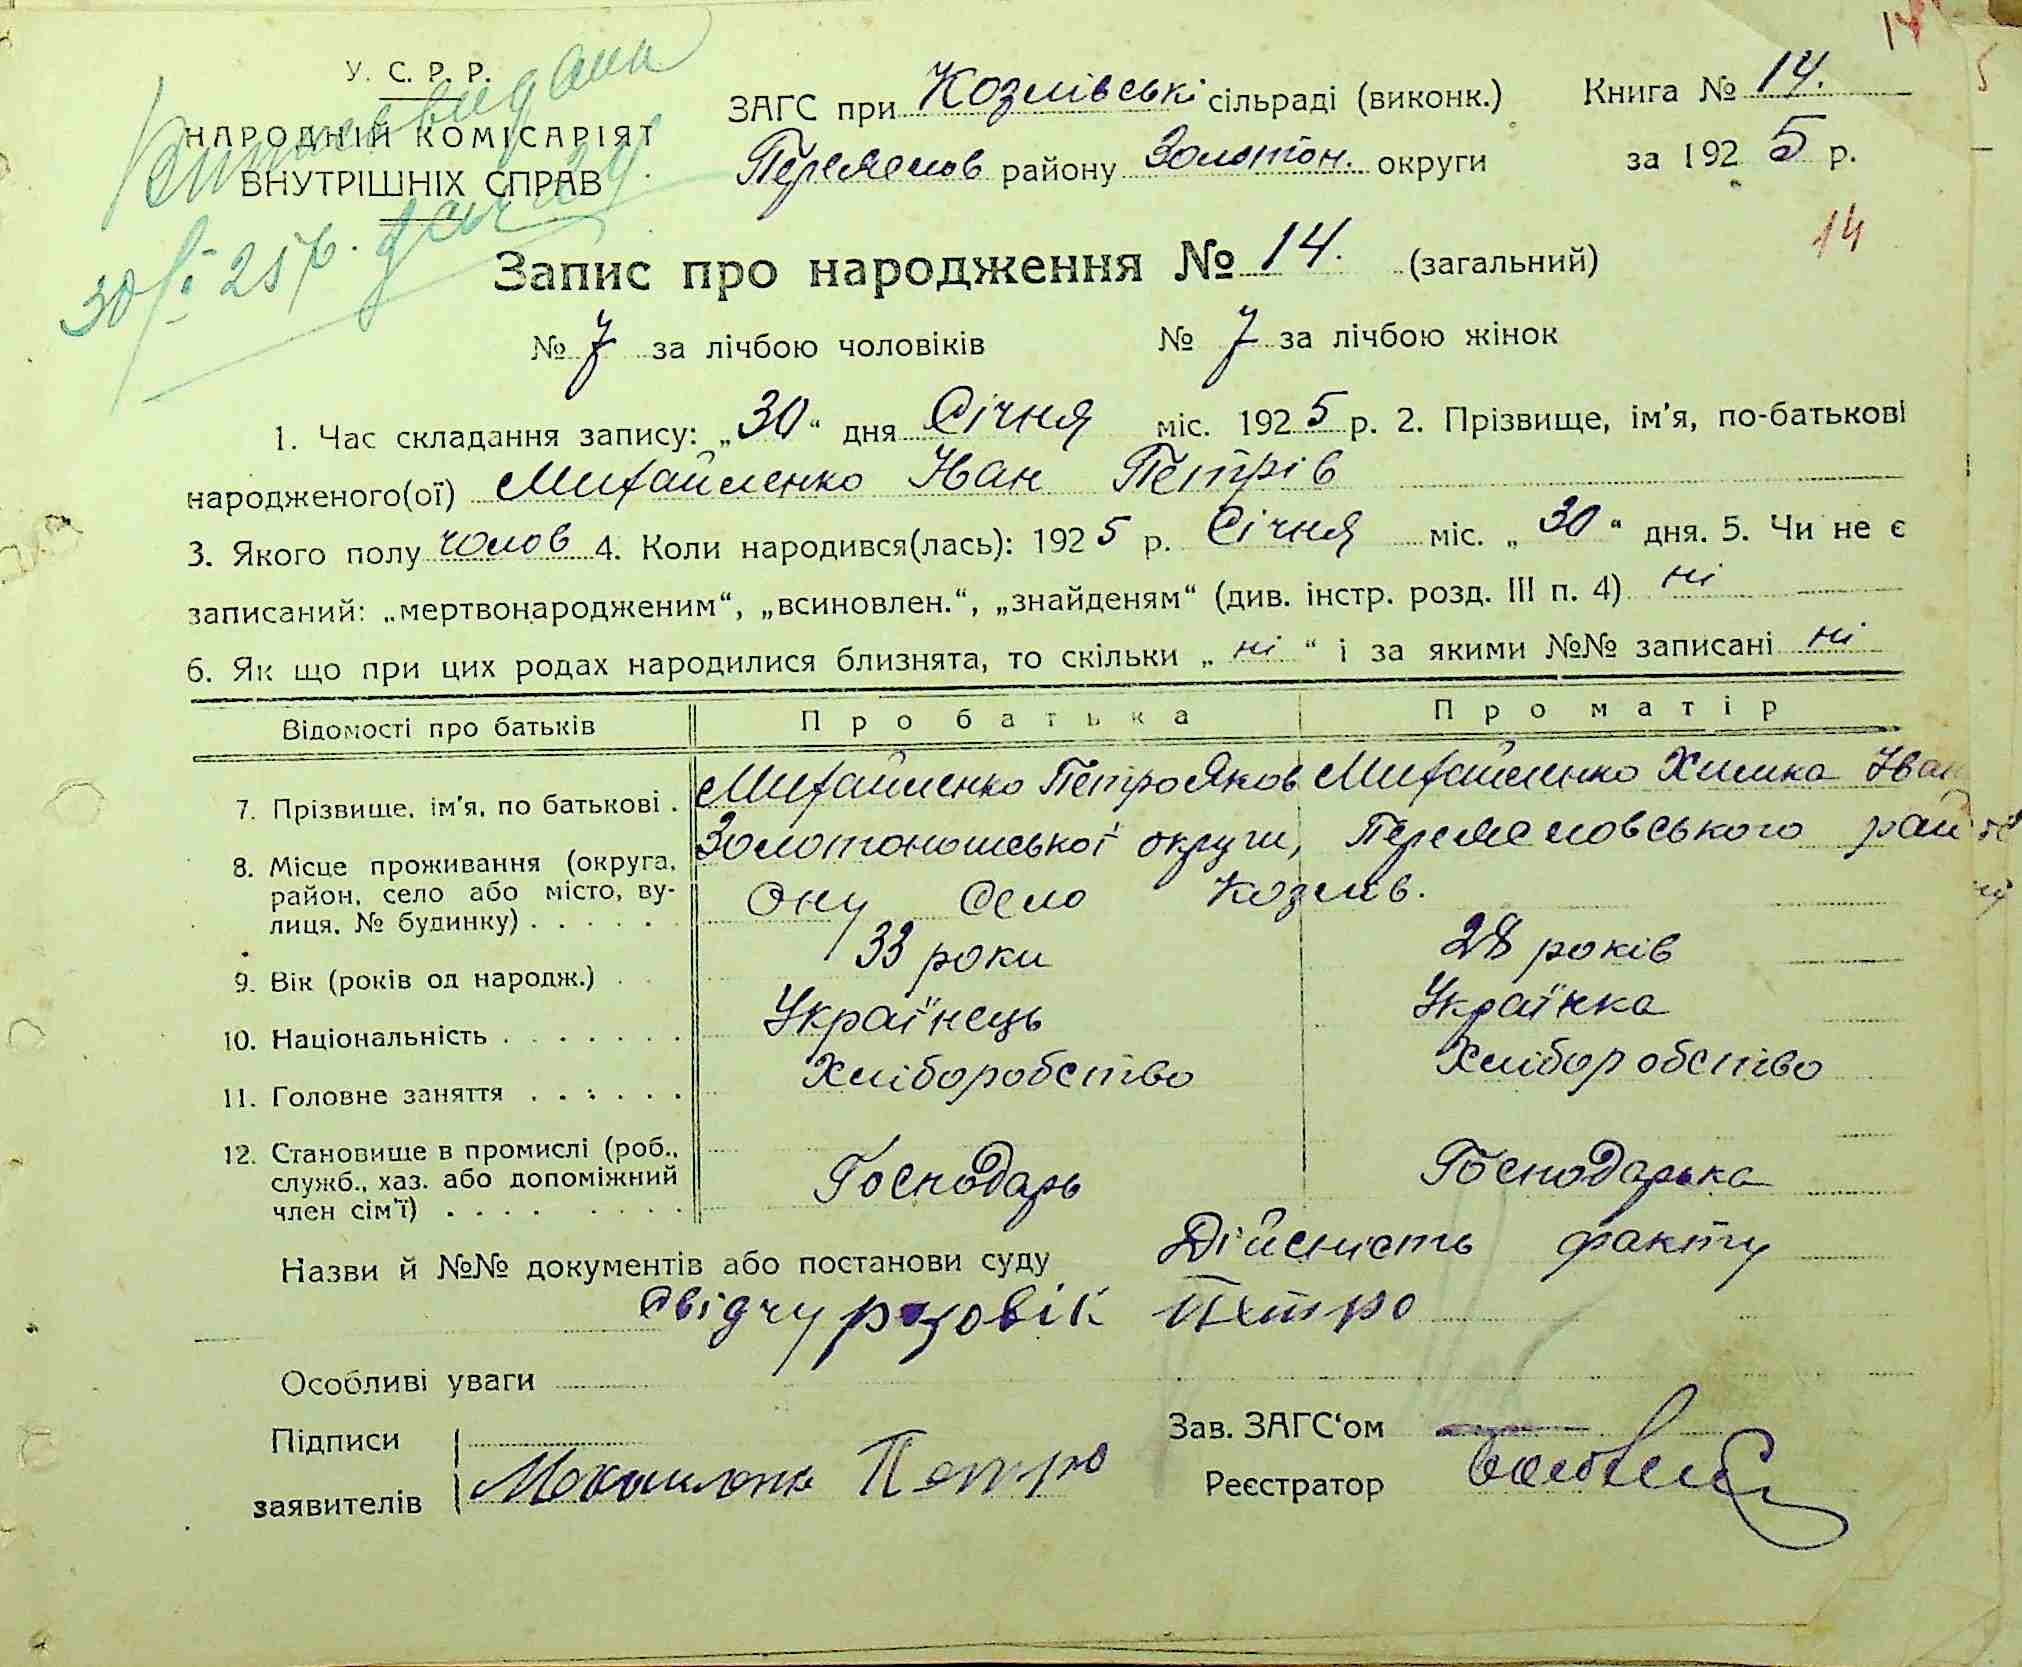 У. С. Р. Р.
НАРОДНІЙ КОМІСАРІЯТ
ВНУТРІШНІХ СПРАВ
30/I 25 р.
ЗАГС при Козлівські сільраді (виконк.)
район у Золотон. округи
Книга № 14.
за 1925 р.
14
Запис про народження № 14. (загальний)
№ 7 за лічбою чоловіків № 7 за лічбою жінок
1. Час складання запису: „30“ дня Січня міс. 1925 р. 2. Прізвище, ім'я, по-батькові
народженого(ої) Михайленко Іван Петрів
3. Якого полу чолов 4. Коли народився(лась): 1925 р. Січня міс. „30“ дня. 5. Чи не є
записаний: „мертвонародженим“, „всиновлен.“, „знайденям“ (див. інстр. розд. III п. 4) ні
6. Як що при цих родах народилися близнята, то скільки „ні“ і за якими №№ записані ні
Відомості про батьків Про батька Про матір
7. Прізвище, ім'я, по батькові . Михайленко Петро Яков Михайленко Химка Іван
8. Місце проживання (округа, район, село або місто, вулиця, № будинку) . . . . . Золотоношської округи,
ону село Козлів.
9. Вік (років од народж.) . . 33 роки 28 років
10. Національність . . . . . . . Українець Українка
11. Головне заняття . . . . . . Хліборобство Хліборобство
12. Становище в промислі (роб., служб., хаз. або допоміжний член сім'ї) . . . . Господарь Господарька
Назви й №№ документів або постанови суду Дійсність факту
свідчу Петро
Особливі уваги
Підписи
заявителів Петро
Зав. ЗАГС'ом
Реєстратор